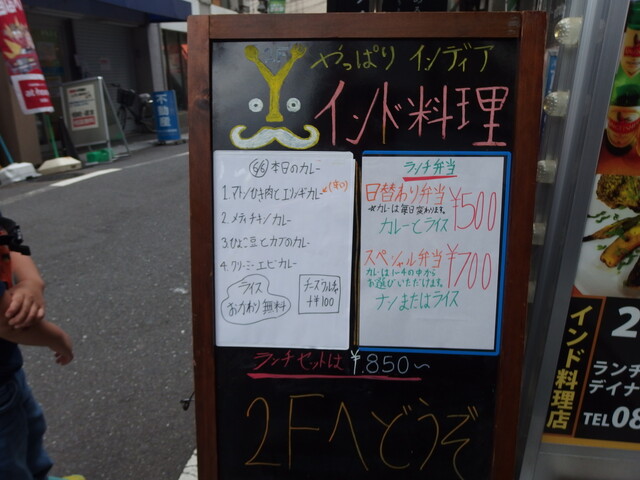 やっぱり インディア
インド料理
5/6 本日のカレー
1.マトンひき肉とエリンギカレー (辛口)
2.メティチキンカレー
3.ひよこ豆とカブのカレー
4.クリーミーエビカレー
ライス
おかわり無料
チーズクルチャ
+¥100
ランチ弁当
日替わり弁当 ¥500
※カレーは毎日変わります。
カレーとライス
スペシャル弁当 ¥700
カレーは1〜4の中から
お選びいただけます。
ナンまたはライス
ランチセットは ¥850〜
2Fへどうぞ
インド料理店
2
ランチ
デイナ
TEL08